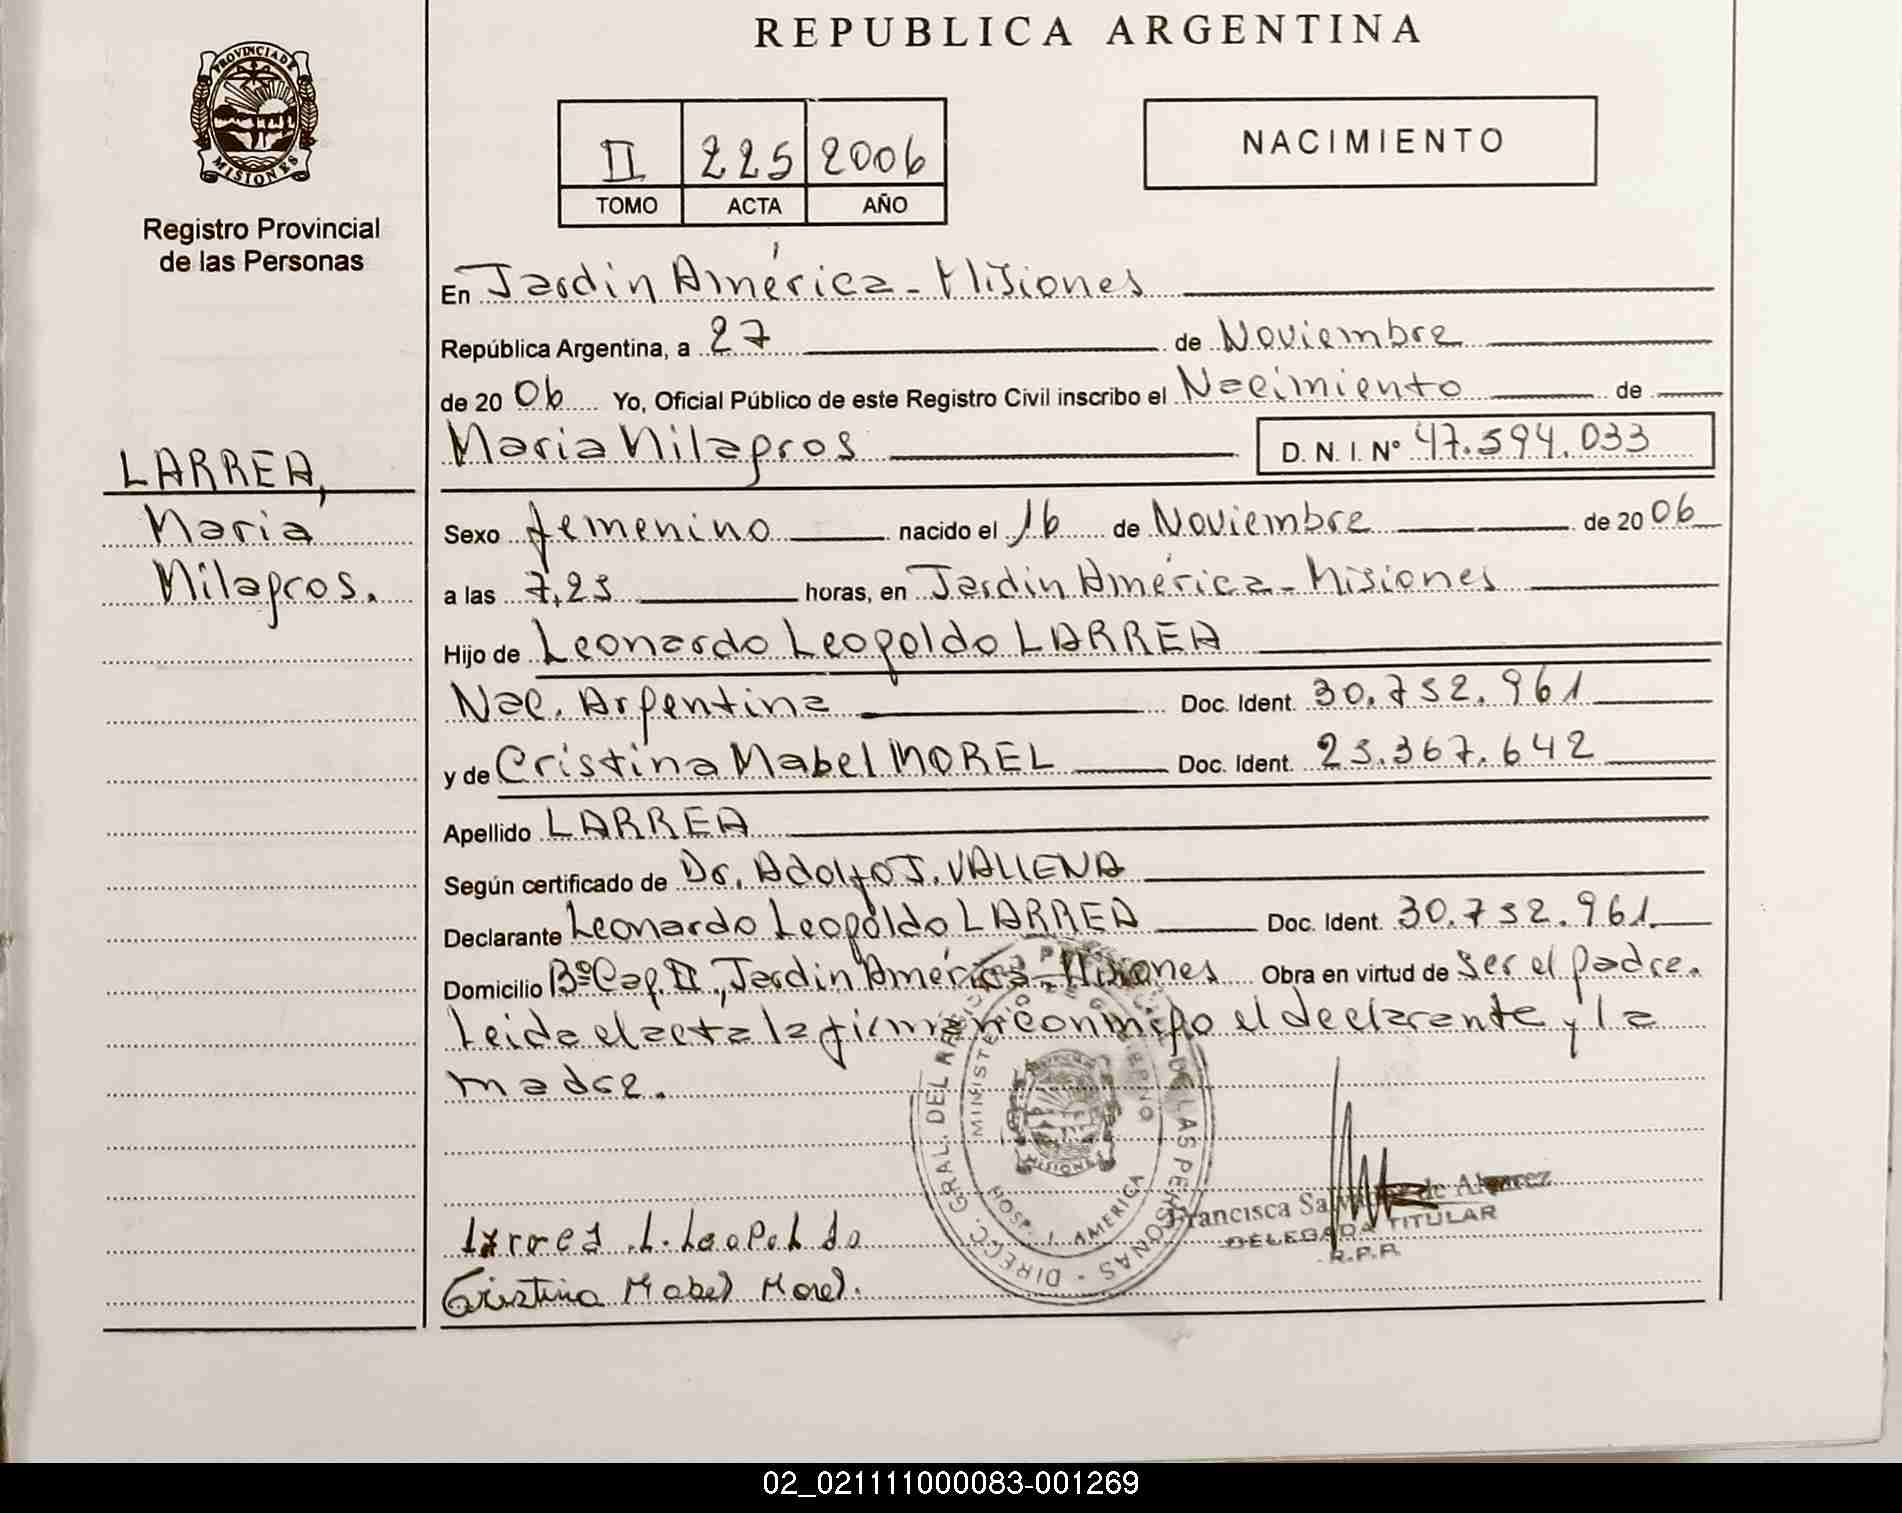 REPUBLICA ARGENTINA
PROVINCIA DE MISIONES
Registro Provincial
de las Personas
II 225 2006
TOMO ACTA AÑO
NACIMIENTO
En Jardín América - Misiones
República Argentina, a 27 de Noviembre
de 20 06 Yo, Oficial Público de este Registro Civil inscribo el Nacimiento de
Maria Milagros D. N. I. Nº 47.594.033
LARREA,
Maria
Milagros.
Sexo femenino nacido el 16 de Noviembre de 20 06
a las 7,25 horas, en Jardin América - Misiones
Hijo de Leonardo Leopoldo LARREA
Nac. Argentina Doc. Ident. 30.752.961
y de Cristina Mabel MOREL Doc. Ident. 25.367.642
Apellido LARREA
Según certificado de Dr. Adolfo J. VALLENA
Declarante Leonardo Leopoldo LARREA Doc. Ident. 30.752.961.
Domicilio Bº Cap. II, Jardin América - Misiones Obra en virtud de ser el padre.
Leida el acta la firman conmigo el declarante y la
madre.
DIRECC. GRAL. DEL DE LAS PERSONAS
MINISTERIO DE GOBIERNO
MISIONES
HOSP. J. AMERICA
Francisca de Alvarez
DELEGADA TITULAR
R.P.P.
Larrea .L. Leopoldo
Cristina Mabel Morel.
02_021111000083-001269